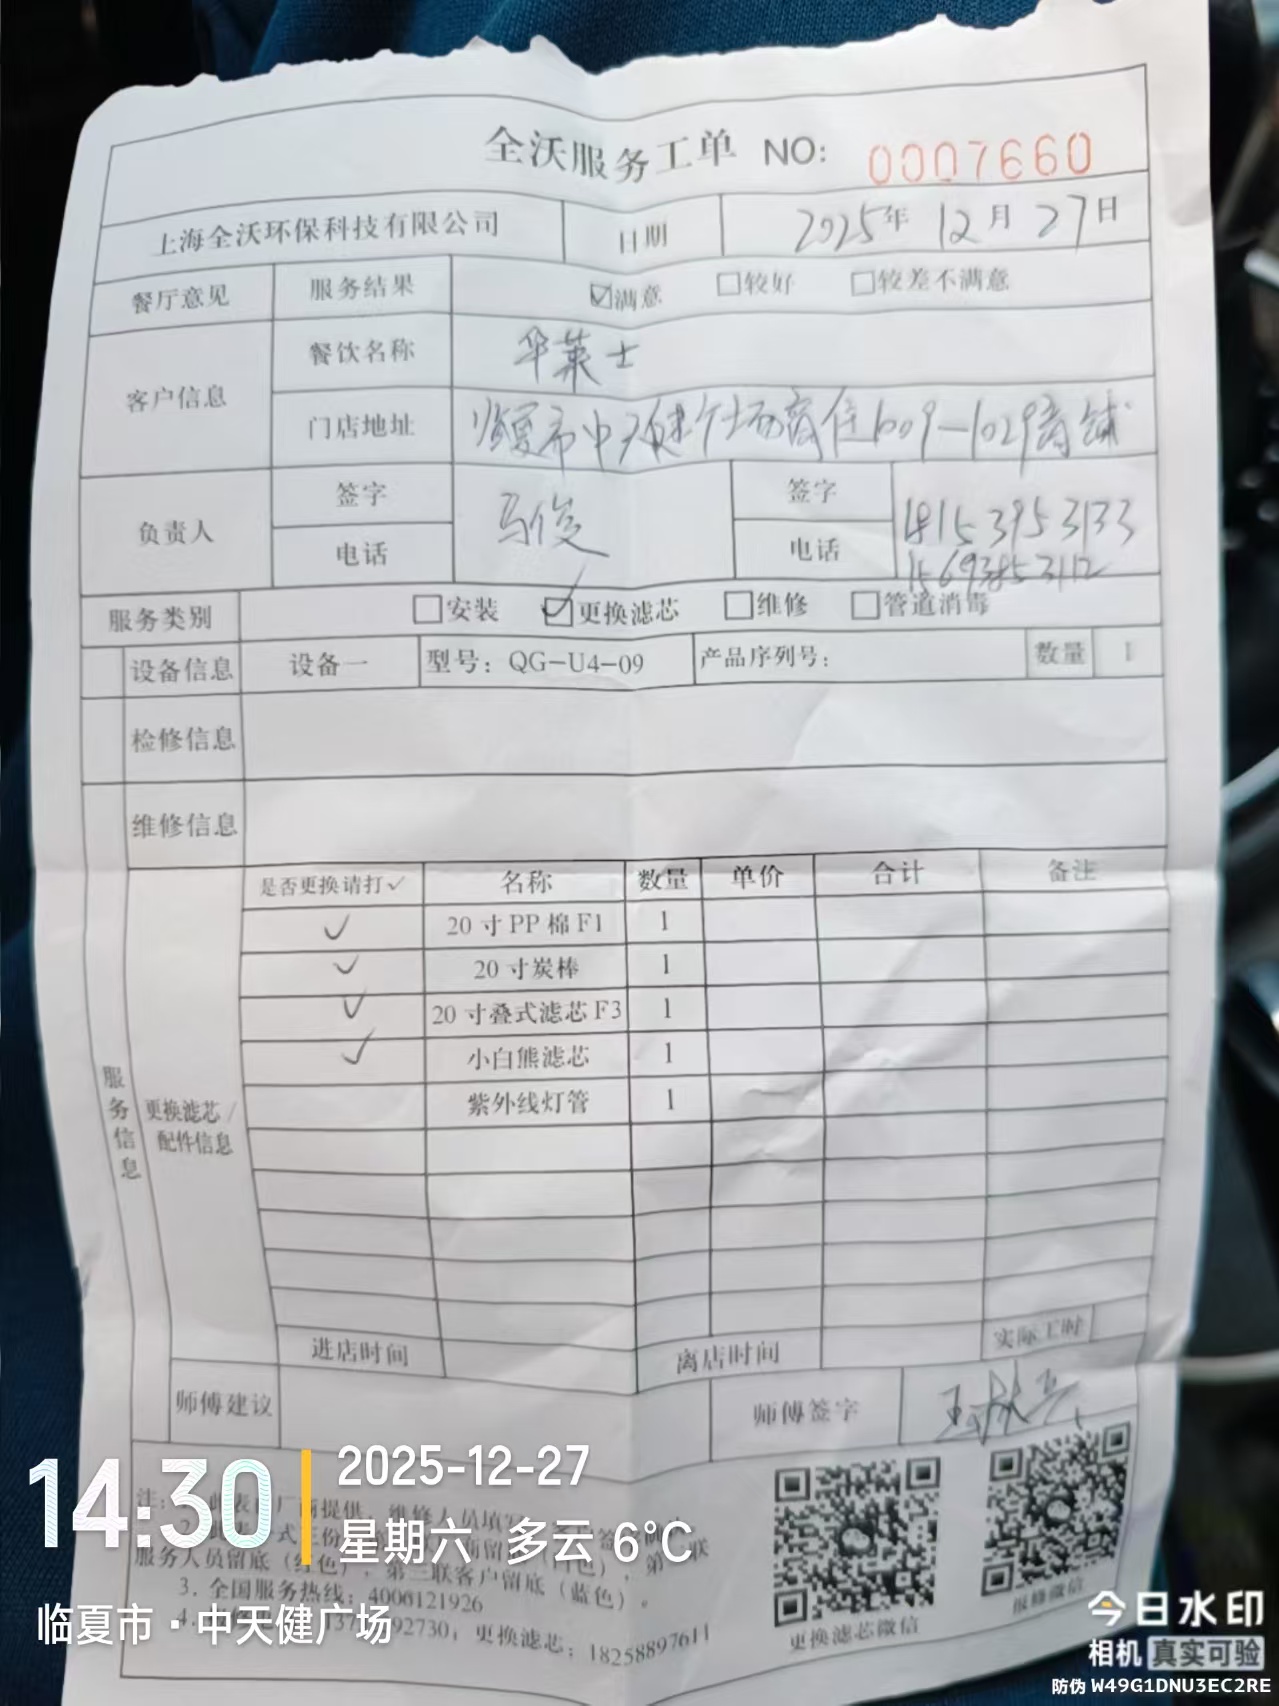 全沃服务工单 NO: 0007660
上海全沃环保科技有限公司 日期 2025年 12月 27日
餐厅意见 服务结果 ☑满意 □较好 □较差不满意
客户信息 餐饮名称 华莱士
门店地址 临夏市中天健广场商住1009-1029商铺
负责人 签字 马俊 签字 18153953133
电话 电话 15693853112
服务类别 □安装 ☑更换滤芯 □维修 □管道消毒
设备信息 设备一 型号: QG-U4-09 产品序列号: 数量 1
检修信息
维修信息
服务信息
更换滤芯/配件信息
是否更换请打✓ 名称 数量 单价 合计 备注
✓ 20寸PP棉F1 1
✓ 20寸炭棒 1
✓ 20寸叠式滤芯F3 1
✓ 小白熊滤芯 1
紫外线灯管 1
进店时间 离店时间 实际工时
师傅建议 师傅签字
注:
表由厂商提供,维修人员填写
服务人员留底(红色),第三联客户留底(蓝色)。
3. 全国服务热线: 4006121926
4. 92730; 更换滤芯: 18258897611
更换滤芯微信
报修微信
14:30
2025-12-27
星期六 多云 6°C
临夏市·中天健广场
今日水印
相机 真实可验
防伪 W49G1DNU3EC2RE